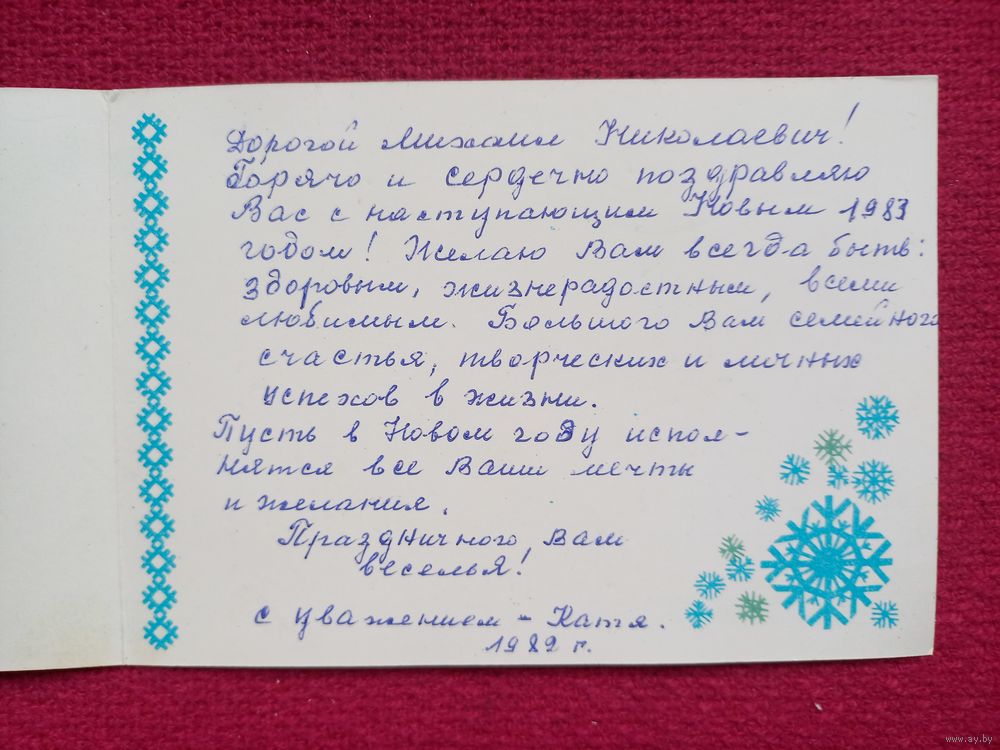 Дорогой Михаил Николаевич!
Горячо и сердечно поздравляю
Вас с наступающим Новым 1983
годом! Желаю Вам всегда быть:
здоровым, жизнерадостным, всеми
любимым. Большого Вам семейного
счастья, творческих и личных
успехов в жизни.
Пусть в Новом году испол-
нятся все Ваши мечты
и желания.
Праздничного Вам
веселья!
С уважением - Катя.
1982 г.
www.ay.by